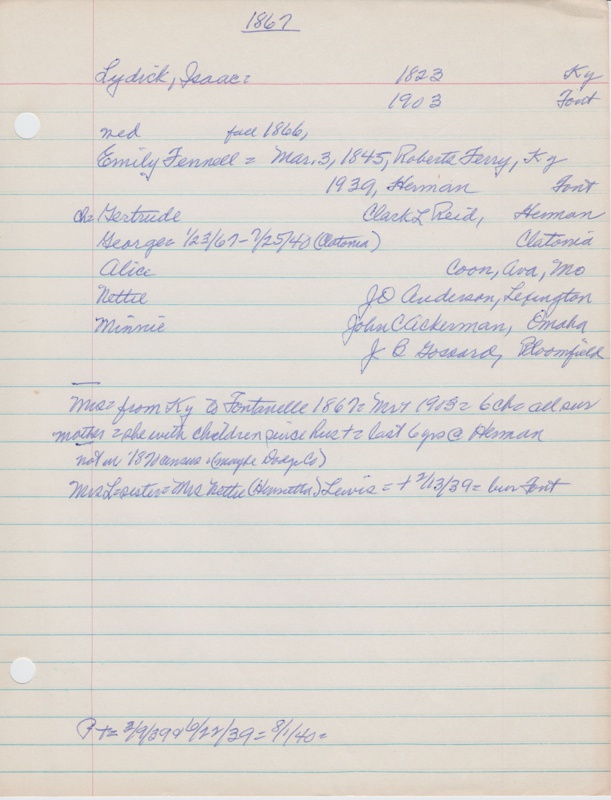 1867
Lydick, Isaac = 1823 Ky
1903 Font
med fall 1866,
Emily Fennell = Mar. 3, 1845, Roberts Ferry, Ky
1939, Herman Font
ch= Gertrude Clark L Reid, Herman
George = 1/23/67 - 7/25/40 (Clatonia) Clatonia
Alice Coon, Ava, Mo
Nettie J D Anderson, Lexington
Minnie John C Ackerman, Omaha
J B Gossard, Bloomfield
Mrs = from Ky to Fontanelle 1867 = Mr + 1903 = 6 ch = all sur
mother = she with children since hus + = last 6 yrs @ Herman
not in 1870 census (maybe Dodge Co)
Mrs L = sister = Mrs Nettie (Henrietta) Lewis = + 2/13/39 = bur Font
P + = 3/9/39 & 6/22/39 = 8/1/40 =